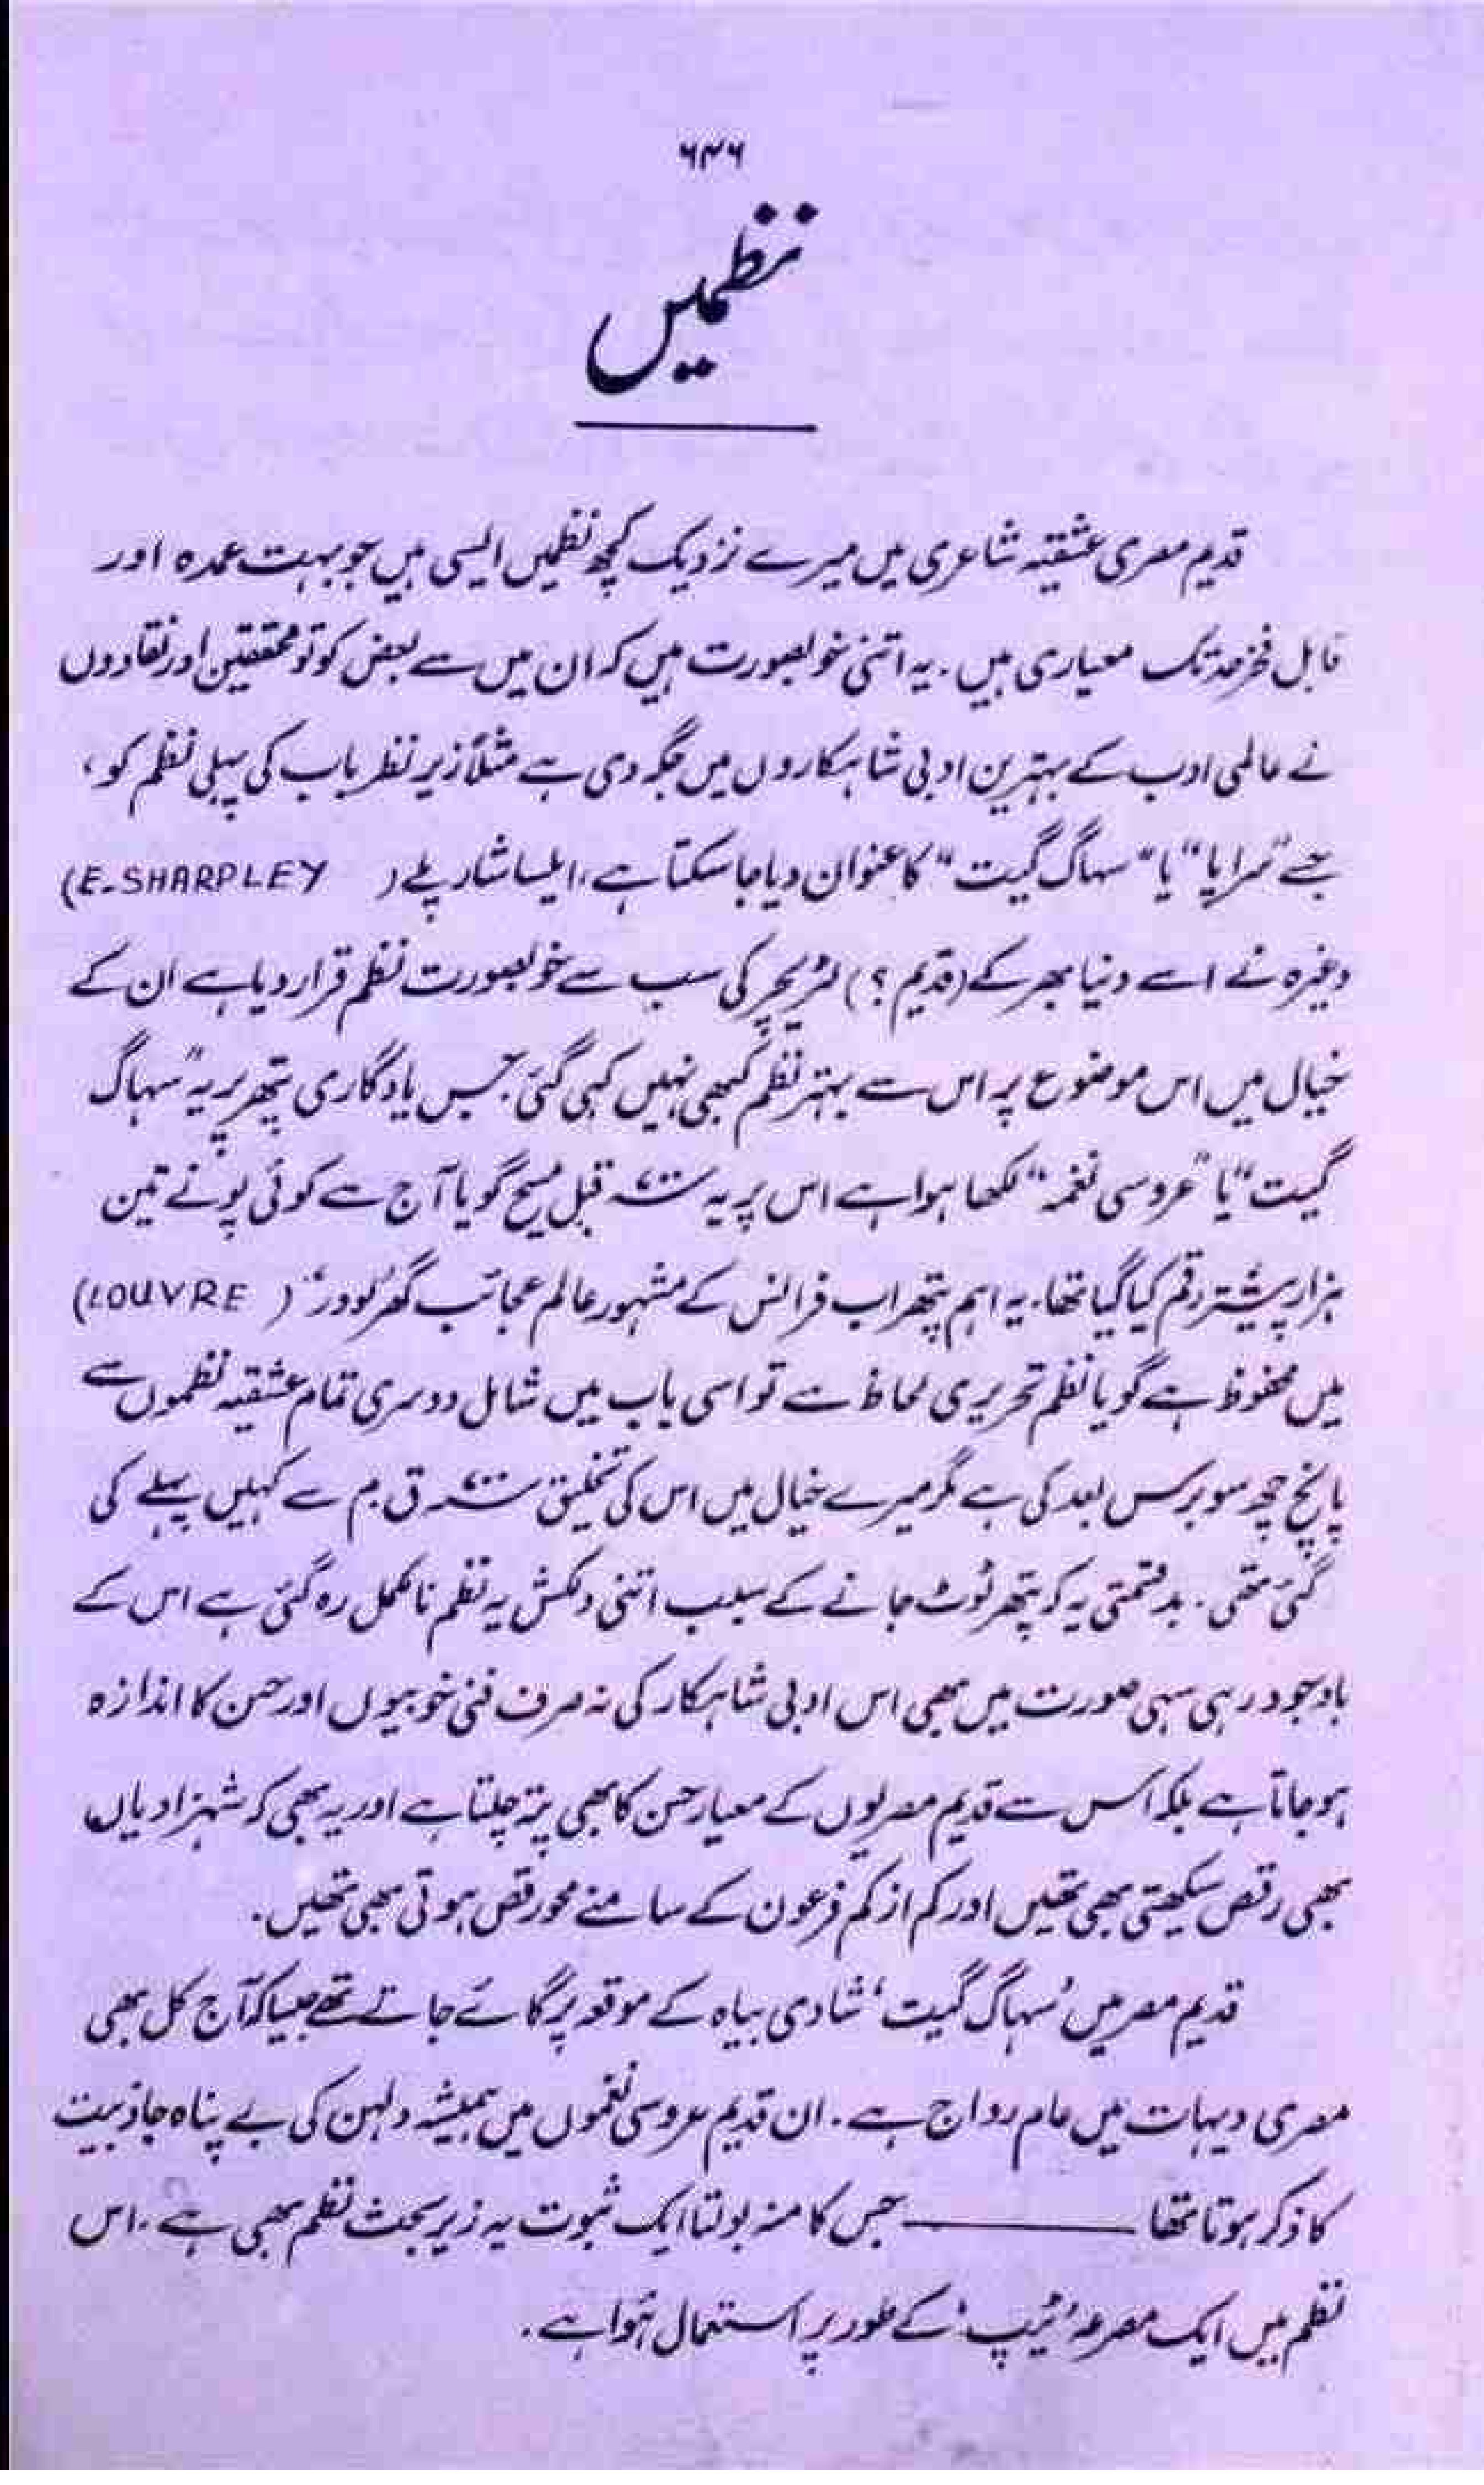 ۶۴۶
نظمیں
قدیم مصری عشقیہ شاعری میں میرے نزدیک کچھ نظمیں ایسی ہیں جو بہت عمدہ اور
قابل فخر حد تک معیاری ہیں۔ یہ اتنی خوبصورت ہیں کہ ان میں سے بعض کو تو محققین اور نقادوں
نے عالمی ادب کے بہترین ادبی شاہکاروں میں جگہ دی ہے مثلاً زیر نظر باب کی پہلی نظم کو،
جسے "سراپا" یا "سہاگ گیت" کا عنوان دیا جا سکتا ہے، ایلسا شارپلے (E-SHARPLEY)
وغیرہ نے اسے دنیا بھر کے (قدیم؟) لٹریچر کی سب سے خوبصورت نظم قرار دیا ہے ان کے
خیال میں اس موضوع پر اس سے بہتر نظم کبھی نہیں کہی گئی۔ جس یادگاری پتھر پر یہ "سہاگ
گیت" یا "عروسی نغمہ" لکھا ہوا ہے اس پر یہ ۷۰۰ قبل مسیح گویا آج سے کوئی پونے تین
ہزار پیشتر رقم کیا گیا تھا۔ یہ اہم پتھر اب فرانس کے مشہور عالم عجائب گھر 'لوور' (LOUVRE)
میں محفوظ ہے گویا نظم تحریری لحاظ سے تو اسی باب میں شامل دوسری تمام عشقیہ نظموں سے
پانچ چھ سو برس بعد کی ہے مگر میرے خیال میں اس کی تخلیق ۷۰۰ ق م سے کہیں پہلے کی
گئی تھی۔ بدقسمتی یہ کہ پتھر ٹوٹ جانے کے سبب اتنی دلکش یہ نظم نامکمل رہ گئی ہے اس کے
باوجود رہی سہی صورت میں بھی اس ادبی شاہکار کی نہ صرف فنی خوبیوں اور حسن کا اندازہ
ہو جاتا ہے بلکہ اس سے قدیم مصریوں کے معیار حسن کا بھی پتہ چلتا ہے اور یہ بھی کہ شہزادیاں
بھی رقص سیکھتی بھی تھیں اور کم از کم فرعون کے سامنے محو رقص ہوتی بھی تھیں۔
قدیم مصر میں 'سہاگ گیت' شادی بیاہ کے موقعہ پر گائے جاتے تھے جیسا کہ آج کل بھی
مصری دیہات میں عام رواج ہے۔ ان قدیم عروسی نغموں میں ہمیشہ دلہن کی بے پناہ جاذبیت
کا ذکر ہوتا تھا ——— جس کا منہ بولتا ایک ثبوت یہ زیر بحث نظم بھی ہے۔ اس
نظم میں ایک مصرعہ 'ٹیپ' کے طور پر استعمال ہوا ہے۔